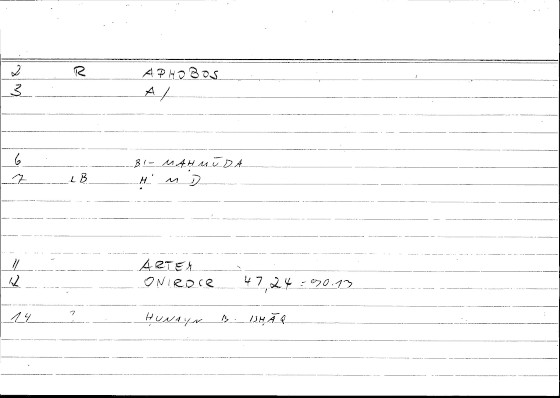 2 R APHOBOS
3 A /
6 BI- MAḤMŪDA
7 LB Ḥ M D
11 ARTEM
12 ONIROCR 47,24 = 90.13
14 ? ḤUNAYN B. ISḤĀQ